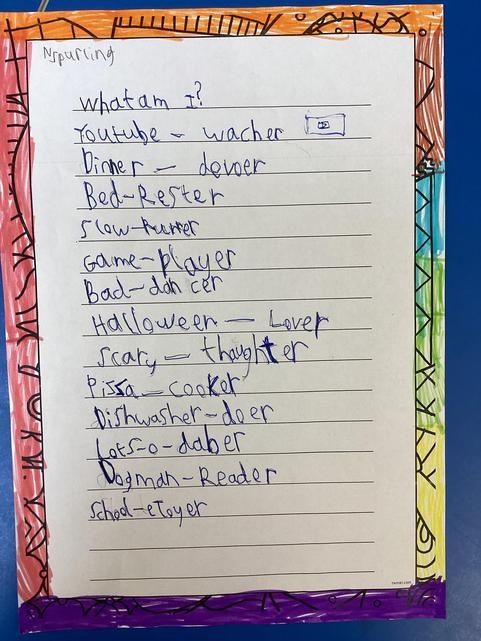 Nspurling
What am I?
Youtube - wacher
Dinner - devoer
Bed-Rester
Slow-Runner
Game-player
Bad-dancer
Halloween - Lover
Scary - thoughter
Pissa-cooker
Dishwasher-doer
Lots-o-daber
Dogman-Reader
School-eToyer
twinkl.com